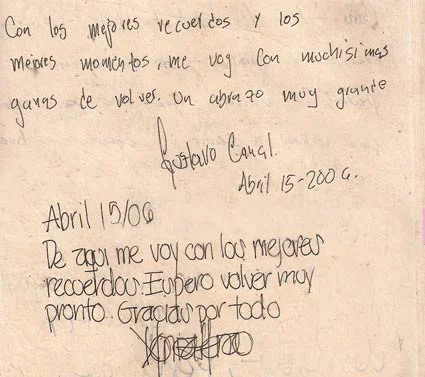 Con los mejores recuerdos y los
mejores momentos, me voy con muchisimas
ganas de volver. Un abrazo muy grande
Gustavo Canal.
Abril 15-2006.
Abril 15/06
De aqui me voy con los mejores
recuerdos. Espero volver muy
pronto. Gracias por todo